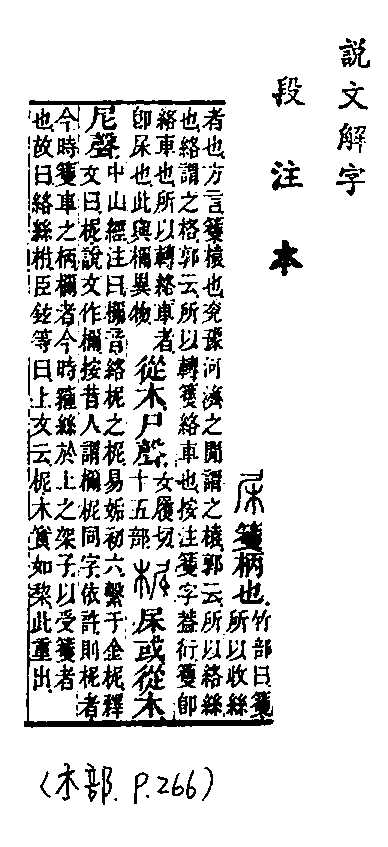 說文解字
段注本
籰柄也竹部曰籰
所以收絲
者也方言籰榬也兗豫河濟之閒謂之榬郭云所以絡絲
也絡謂之格郭云所以轉籰絡車也按注籰字葢衍籰卽
絡車也所以轉絡車者
卽㞒也此與檷異物
從木尸聲
女履切
十五部
㞒或從木
尼聲
中山經注曰檷音絡柅之柅易姤初六繫于金柅釋
文曰柅說文作檷按昔人謂檷柅同字依許則柅者
今時籰車之柄檷者今時籰絲於上之架子以受籰者
也故曰絡絲柎臣鉉等曰上文云柅木實如棃此重出
(木部. P.266)